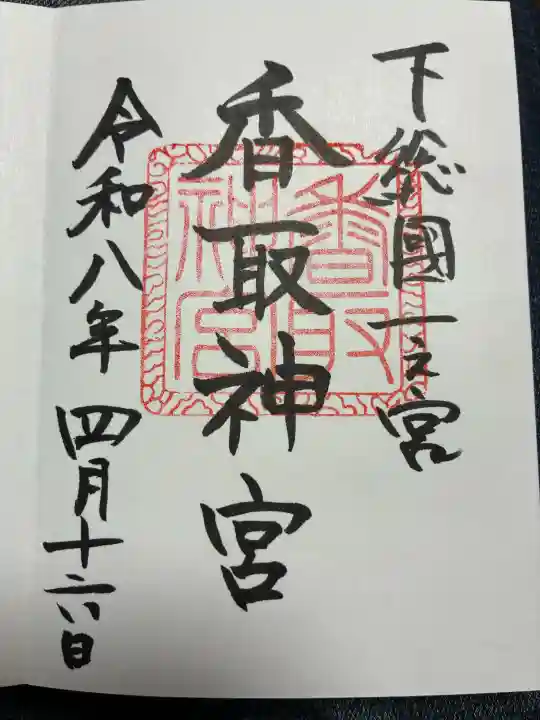 下総國一之宮
香取神宮
香取神宮
令和八年四月十六日